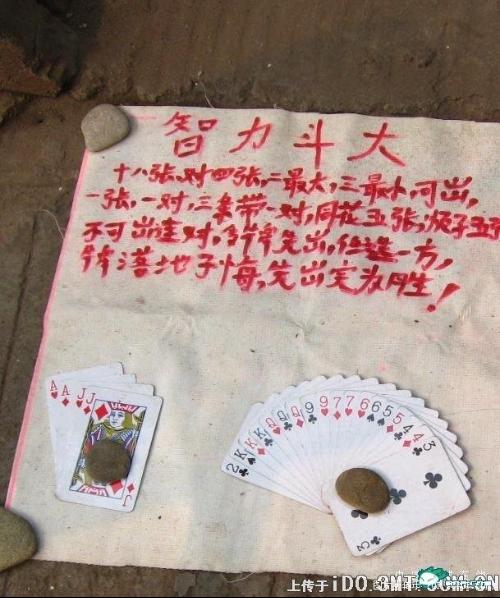 智力斗大
十八张、对四张,二最大,三最小,可出,
一张,一对,三条带一对,同花五张,顺子五张
不可出连对,多牌先出,任选一方,
牌落地不悔,先出完为胜!
A A J J
J
2 K K Q Q Q 9 9 7 7 6 6 5 5 4 4 3
3
上传于iDO.3MT.COM.CN